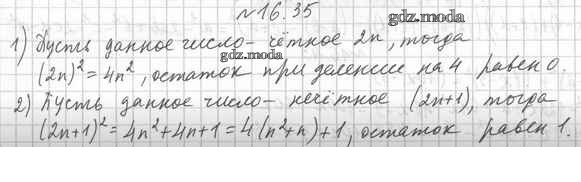 №16.35
gdz.moda
1) Пусть данное число - чётное 2n, тогда
gdz.moda
(2n)² = 4n², остаток при делении на 4 равен 0.
2) Пусть данное число - нечётное (2n+1), тогда
(2n+1)² = 4n²+4n+1 = 4(n²+n)+1, остаток равен 1.